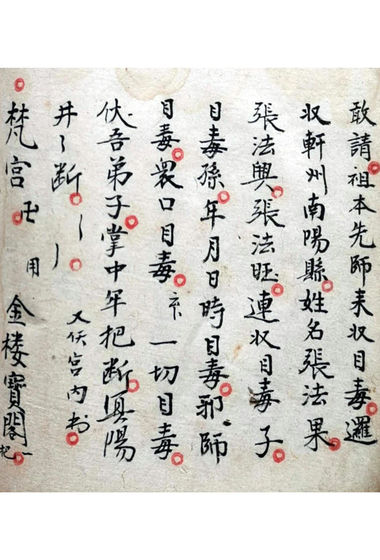 敢請祖本先師来収目毒邏
収軒州南陽縣姓名張法果
張法興張法旺連収目毒子
目毒孫年月日時目毒邪師
目毒衆口目毒 一切目毒
伏吾弟子掌中年把断真陽
井〻断〻〻
又伏宫内
梵宫卍 用 金楼寳閣 一